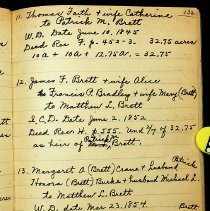 132
11. Thomas Faith & wife Catherine
to Patrick M. Brett
W.D. Date June 10, 1845
Deed Rec F p. 452-3. 32.75 acres
10a + 10a + 12.75a. = 32.75
12. James F. Brett & wife Alice
& Francis P. Bradley & wife Mary (Brett)
to Matthew L. Brett
Q.C.D. Date June 2, 1852
Deed Rec H p. 555. Und 4/7 of 32.75
as heir of Patrick Brett.
13. Margaret A (Brett) Crane & husband Patrick
Honora (Brett) Burke & husband Michael L.
to Matthew L. Brett
W.D. date Mar 23, 1854
Brett